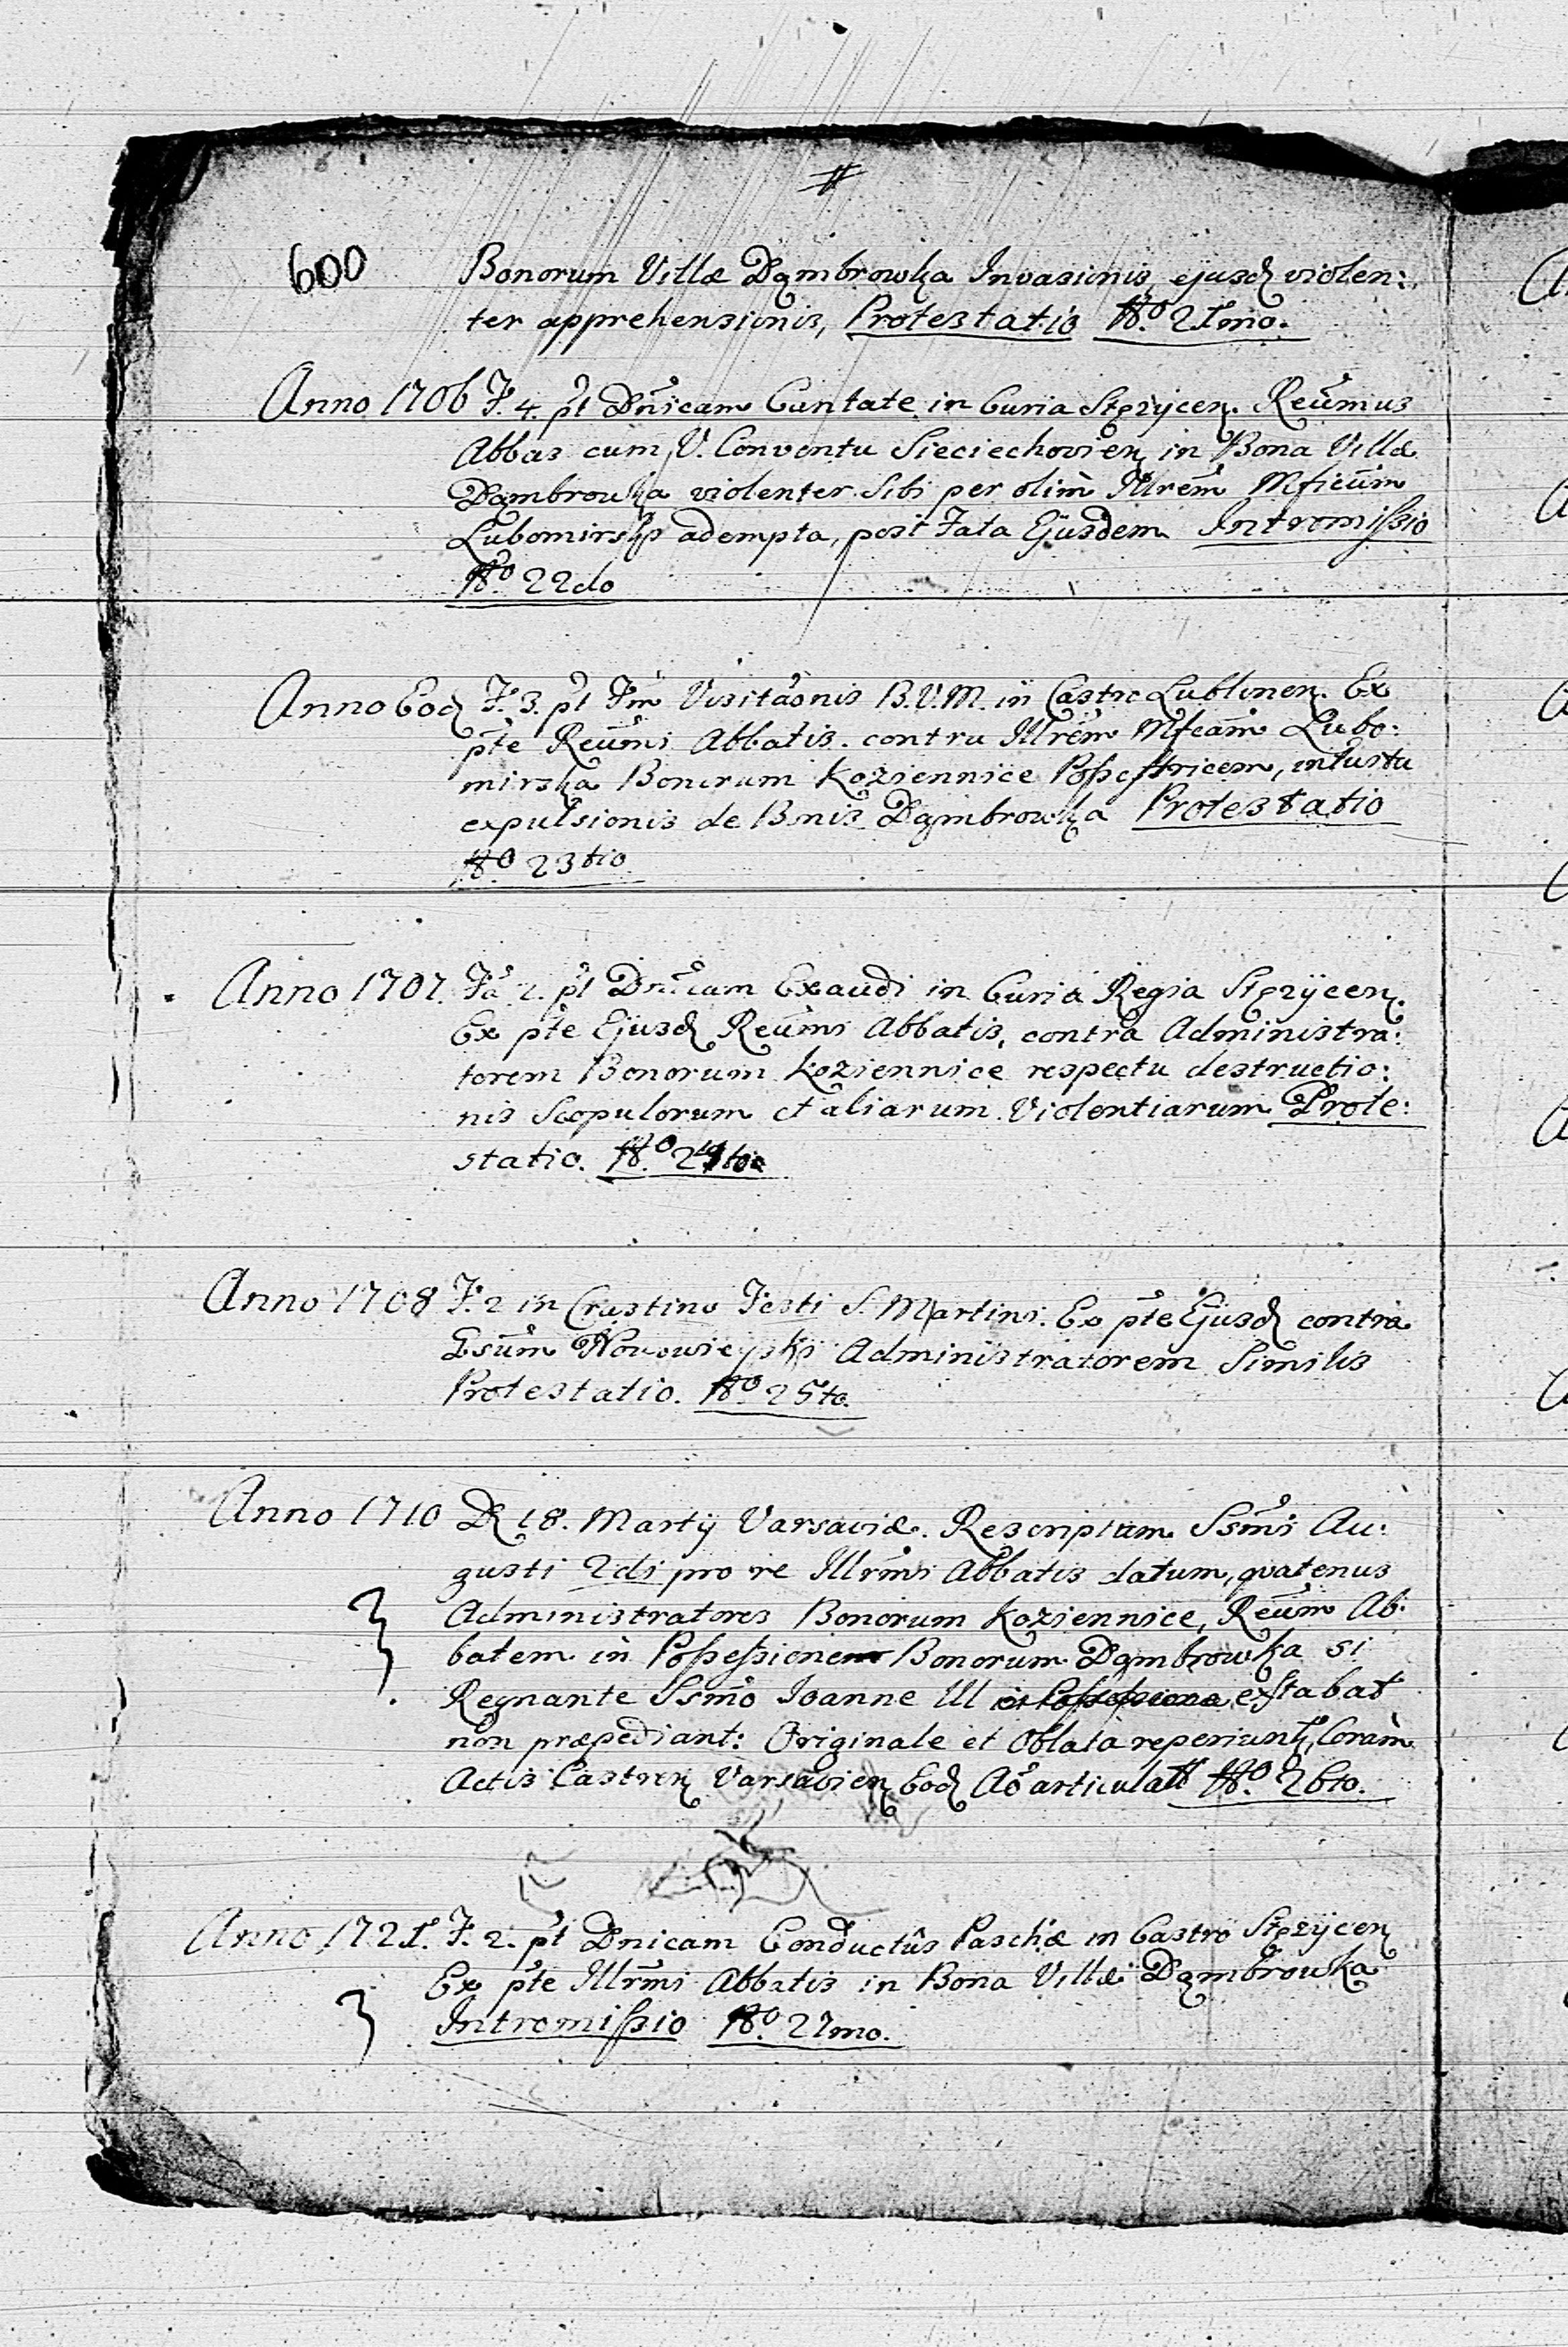 #
600 Bonorum Villæ Dąmbrowka Invasionis, ejusd violen:
ter apprehensionis, Protestatio No. 21mo.
Anno 1706 F. 4. pt Dnicam Cantate in Curia Stęzycen. Reumus
Abbas cum V. Conventu Sieciechovien in Bona Villæ
Dąmbrowka violenter Sibi per olim Illrem Mficum
Lubomirski adempta, post Fata Ejusdem Intromissio
No. 22do
Anno Eod F. 3. pt Fm Visitaonis B.V.M. in Castro Lublinen. Ex
pte Reumi Abbatis contra Illrem Mfcam Lubo:
mirska Bonorum Koziennice Possestricem, intuitu
expulsionis de Bonis Dąmbrowka Protestatio
No. 23tio
Anno 1707. Fa 2. pt Dnicam Exaudi in Curia Regia Stęzycen.
Ex pte Ejusd Reumi Abbatis, contra Administra:
torem Bonorum Koziennice respectu destructio:
nis Scopulorum et aliarum Violentiarum Prote:
statio. No. 24to
Anno 1708 F. 2 in Crastino Festi S. Martini. Ex pte Ejusd contra
Gsum Nowowieyski Administratorem Similis
Protestatio. No. 25to.
Anno 1710 D 18. Martij Varsaviæ. Rescriptum Ssmi Au:
gusti 2di pro re Illrmi Abbatis datum, quatenus
Administratores Bonorum Koziennice, Reum Ab:
batem in Possessionem Bonorum Dąmbrowka si
Regnante Ssmo Ioanne III in Possessione extabat
non præpediant: Originale et Oblata reperiunt, Coram
Actis Castren Varsavien Eod Ao articulatt No. 26to.
Anno 1721. F. 2. pt Dnicam Conductus Paschæ in Castro Stęzycen
Ex pte Illrmi Abbatis in Bona Villæ Dąmbrowka
Intromissio No. 27mo.